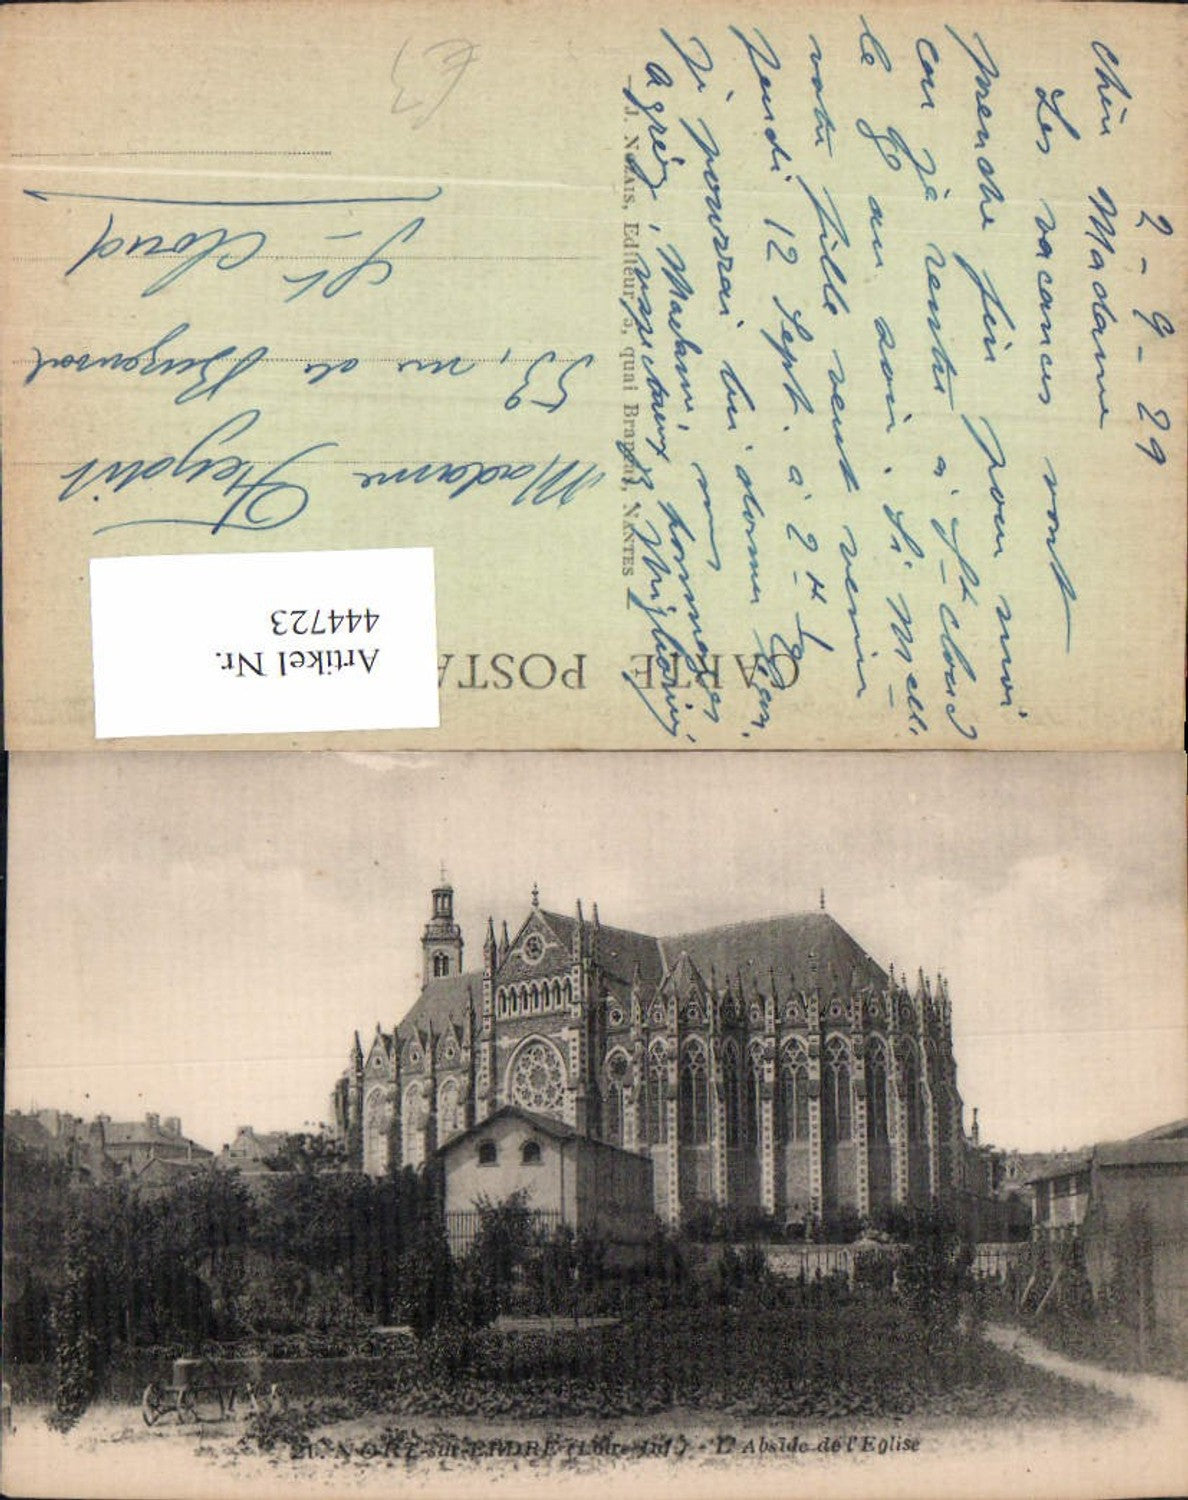 2-9-29
Chère Madame
Les vacances vont
prendre fin pour moi
car je rentre à St Cloud
le 9 au soir. Si Melle
votre fille veut venir
jeudi 12 Sept. à 2H 1/2
je pourrai lui donner leçon.
Agréez, Madame, mes hommages
respectueux
CARTE POSTA
J. NOZAIS, Editeur, 3, quai Brancas, NANTES
Madame
53, rue de Buzenval
St Cloud
Artikel Nr.
444723
21. NORT-sur-ERDRE (Loire-Inf.) - L'Abside de l'Eglise